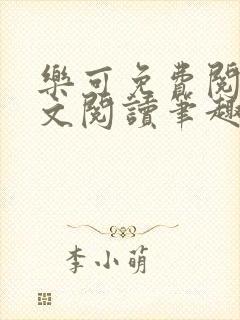 樂可免費閱
文閱讀筆趣
李小萌